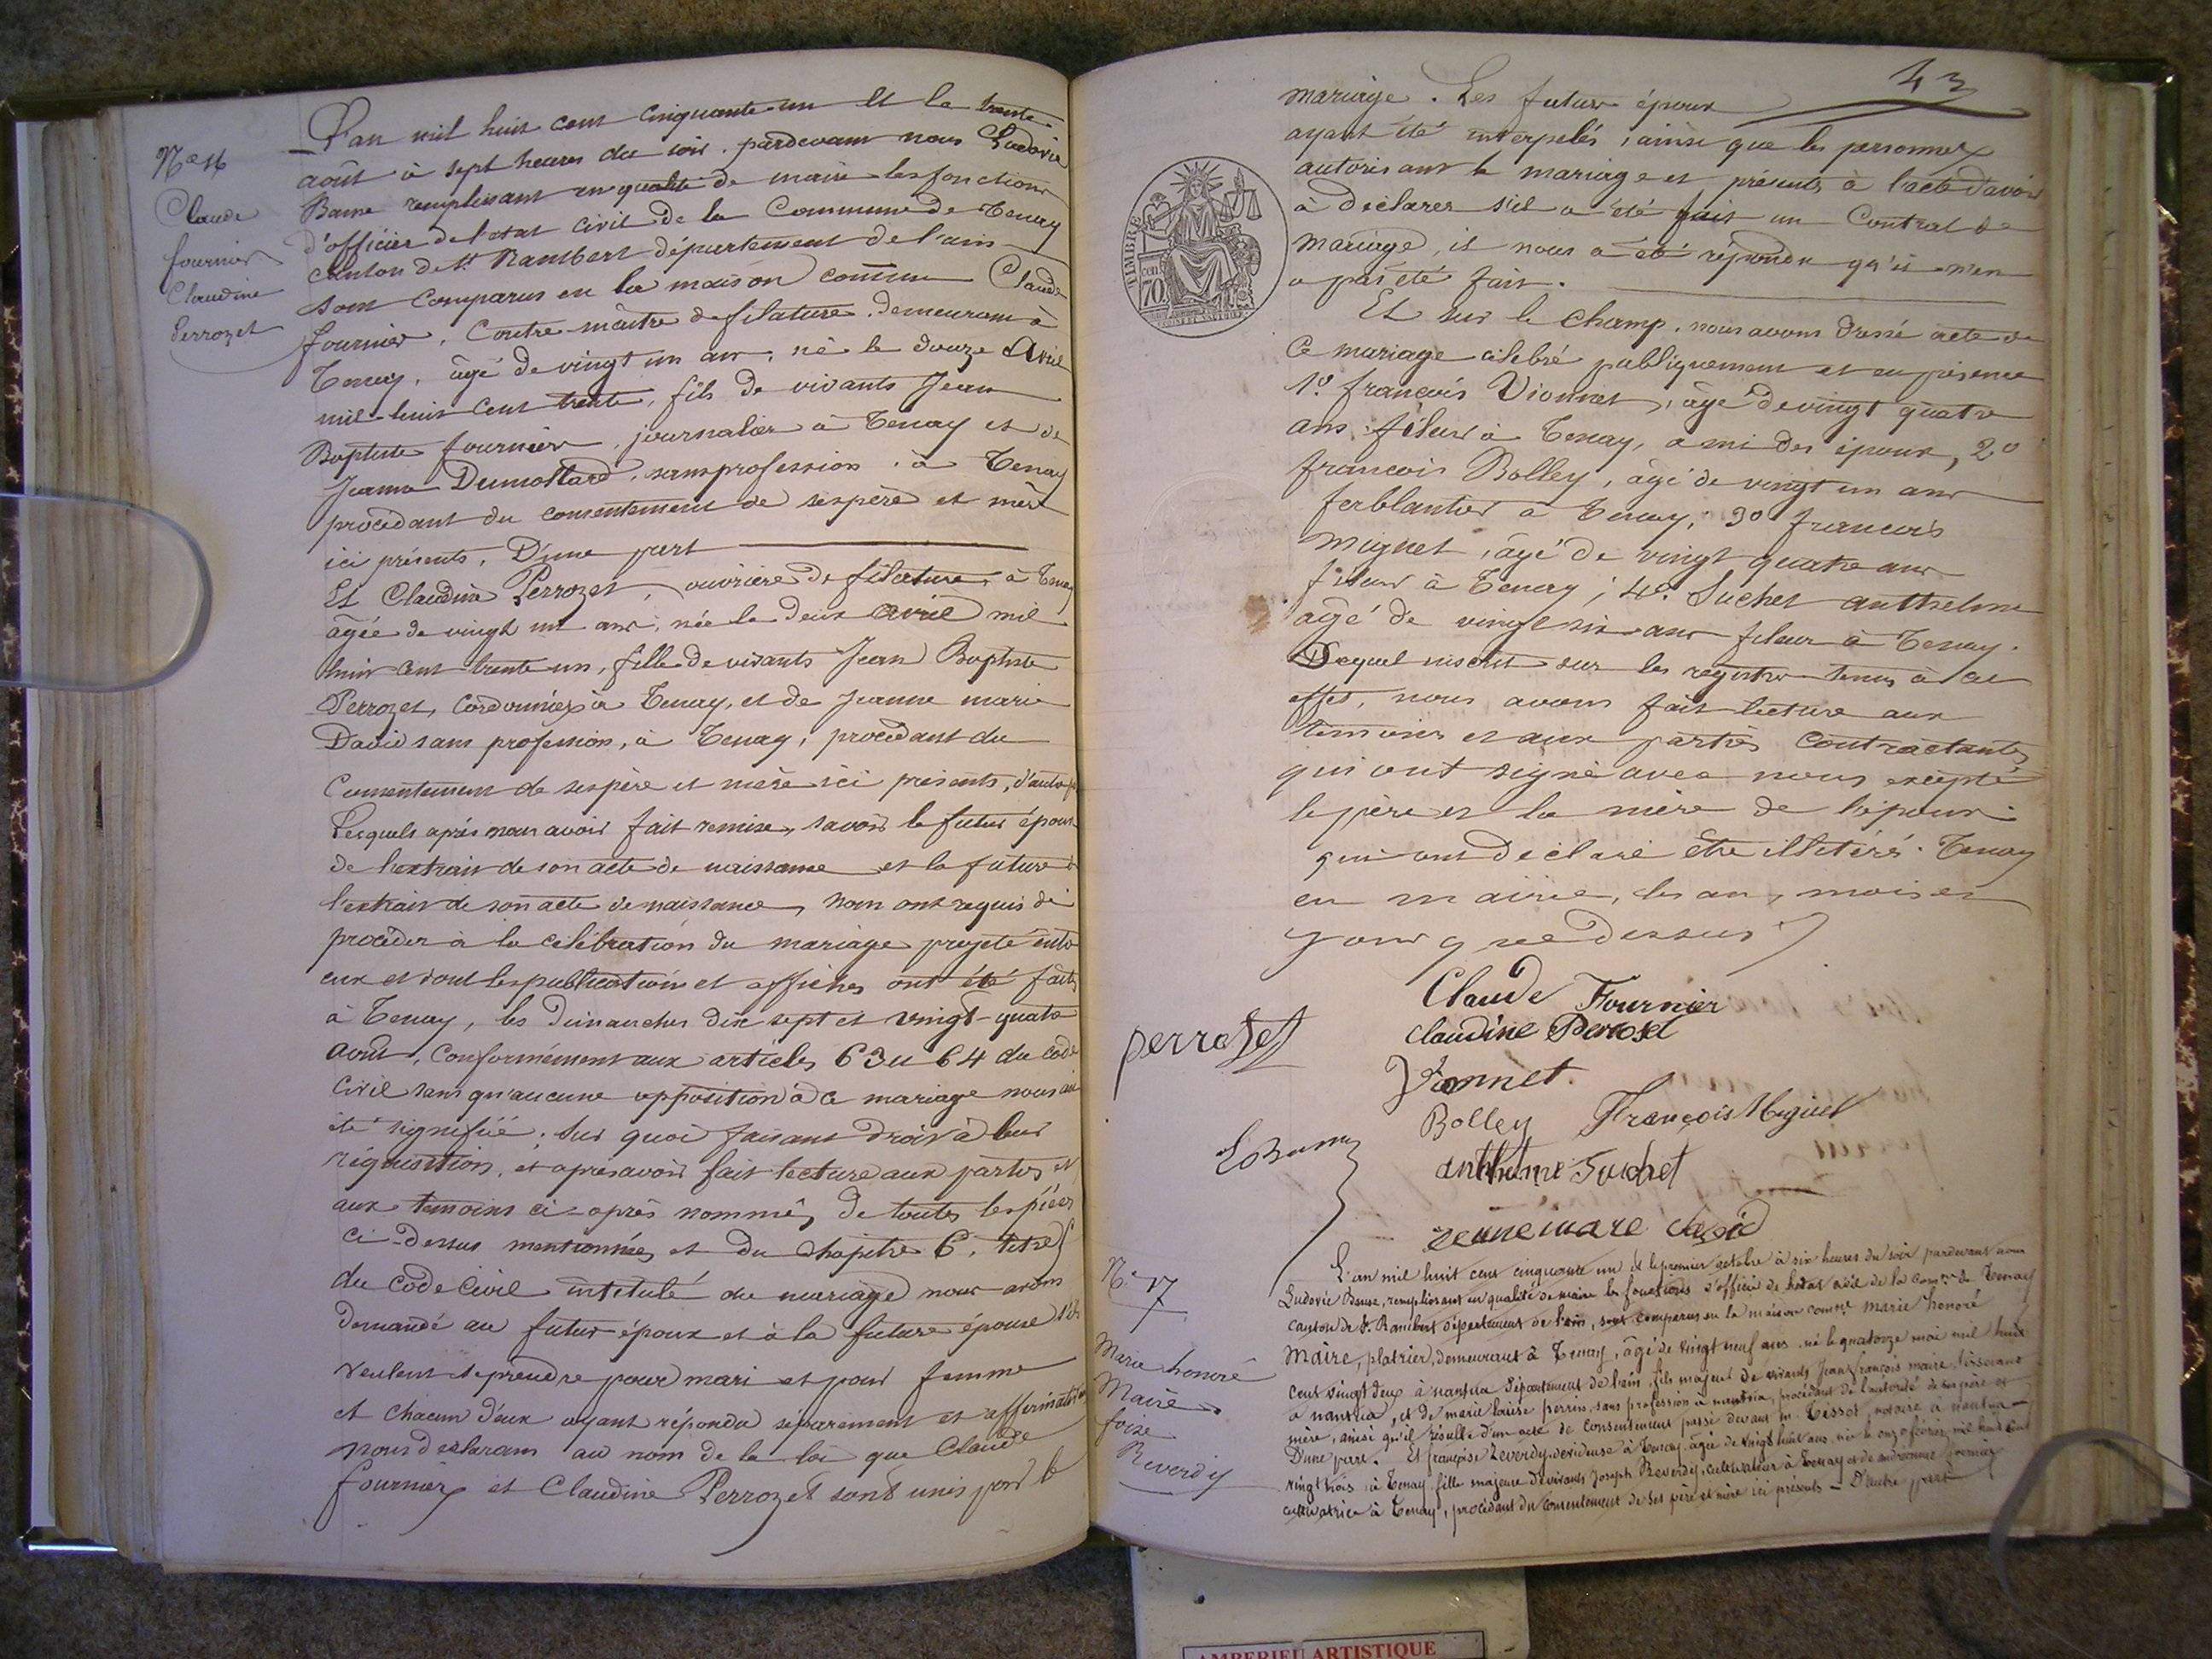 N° 16
Claude
fournier
Claudine
Perrozet
L'an mil huit cent cinquante un et le trente
août à sept heures du soir, pardevant nous Ludovic
Bamse remplissant en qualité de maire les fonctions
d'officier de l'état civil de la Commune de Tenay
canton de St Rambert département de l'ain
sont comparus en la maison commune Claude
fournier, Contre-maître de filature, demeurant à
Tenay, âgé de vingt un ans, né le douze Avril
mil huit cent trente, fils de vivants Jean
Baptiste fournier, journalier à Tenay et de
Jeanne Dumollard, sans profession, à Tenay
procédant du consentement de ses père et mère
ici présents, D'une part
Et Claudine Perrozet, ouvrière de filature, à Tenay
âgée de vingt un ans, née le deux avril mil
huit cent trente un, fille de vivants Jean Baptiste
Perrozet, Cordonnier à Tenay, et de Jeanne marie
David sans profession, à Tenay, procédant du
Consentement de ses père et mère ici présents, d'autre
Lesquels après nous avoir fait remise, savoir le futur époux
de l'extrait de son acte de naissance et la future de
l'extrait de son acte de naissance, nous ont requis de
procéder à la célébration du mariage projeté entre
eux et dont les publications et affiches ont été faites
à Tenay, les Dimanches dix sept et vingt-quatre
août, Conformément aux articles 63 et 64 du code
Civil sans qu'aucune opposition à ce mariage nous ait
été signifiée; Sur quoi faisant droit à leur
réquisition, et après avoir fait lecture aux parties et
aux témoins ci-après nommés, de toutes les pièces
ci-Dessus mentionnées et du chapitre 6, titre 5
du Code Civil intitulé du mariage nous avons
demandé au futur époux et à la future épouse s'ils
veulent se prendre pour mari et pour femme
et chacun d'eux ayant répondu séparément et affirmativement
nous déclarons au nom de la loi que Claude
fournier et Claudine Perrozet sont unis par le
43
mariage. Les futurs époux
ayant été interpelés, ainsi que les personnes
autorisant le mariage et présents à l'acte d'avoir
à déclarer s'il a été fait un Contrat de
mariage, il nous a été répondu qu'il n'en
a pas été fait.
TIMBRE
70
Et sur le champ, nous avons dressé acte de
Ce mariage célébré publiquement et en présence
1° françois Vionnet, âgé de vingt quatre
ans, fileur à Tenay, ami des époux, 2°
françois Bolley, âgé de vingt un ans
ferblantier à Tenay; 3° françois
Mignet, âgé de vingt quatre ans
fileur à Tenay; 4°. Suchet anthelme
agé de vingt six ans fileur à Tenay.
Lequel inscrit sur les registres tenus à cet
effet, nous avons fait lecture aux
témoins et aux parties contractantes
qui ont signé avec nous excepté
le père et la mère de l'époux
qui ont déclaré être illetérés. Tenay
en mairie, les an, mois et
jour que dessus
Claude Fournier
Claudine Perroset
perrozet
Vionnet.
Bolley François Mignet
anthelme Suchet
Jeanne mare david
N° 17
Marie honoré
Maire
foise
Reverdy
L'an mil huit cent cinquante un et le premier octobre à six heures du soir pardevant nous
Ludovic Bamse, remplissant en qualité de maire les fonctions d'officier de l'état civil de la comne de Tenay
canton de St. Rambert département de l'ain, sont comparus en la maison comne Marie honoré
Maire, platrier, demeurant à Tenay, âgé de vingt neuf ans, né le quatorze mai mil huit
cent vingt deux à nantua département de l'ain, fils majeur de vivants Jean françois maire tisserant
à nantua, et de marie louise perrin sans profession à nantua, procédant de l'autorité de ses père et
mère, ainsi qu'il résulte d'un acte de consentement passé devant m. Tissot, notaire à nantua
D'une part. Et françoise Reverdy, dévideuse à Tenay, âgée de vingt huit ans, née le onze février mil huit cent
vingt trois à Tenay fille majeure de vivants Joseph Reverdy, cultivateur à Tenay et de
cultivatrice à Tenay, procédant du consentement de ses père et mère ici présents - D'autre part
AMBERIEU ARTISTIQUE